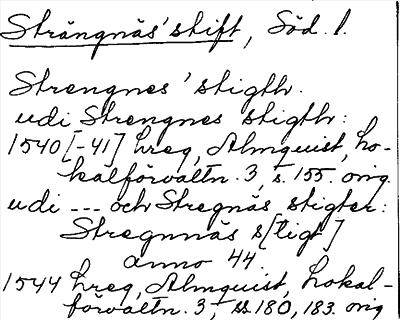 Strängnäs' stift, Söd. l.
Strengnes' stigth.
udi Strengnes stigth:
1540 [-41] hreg, Almquist, Lo-
kalförvaltn. 3, s. 155. orig.
udi --- och Stregnäs stigter:
Stregnnäs s[tigt]
anno 44.
1544 hreg, Almquist, Lokal-
förvaltn. 3, ss 180, 183. orig